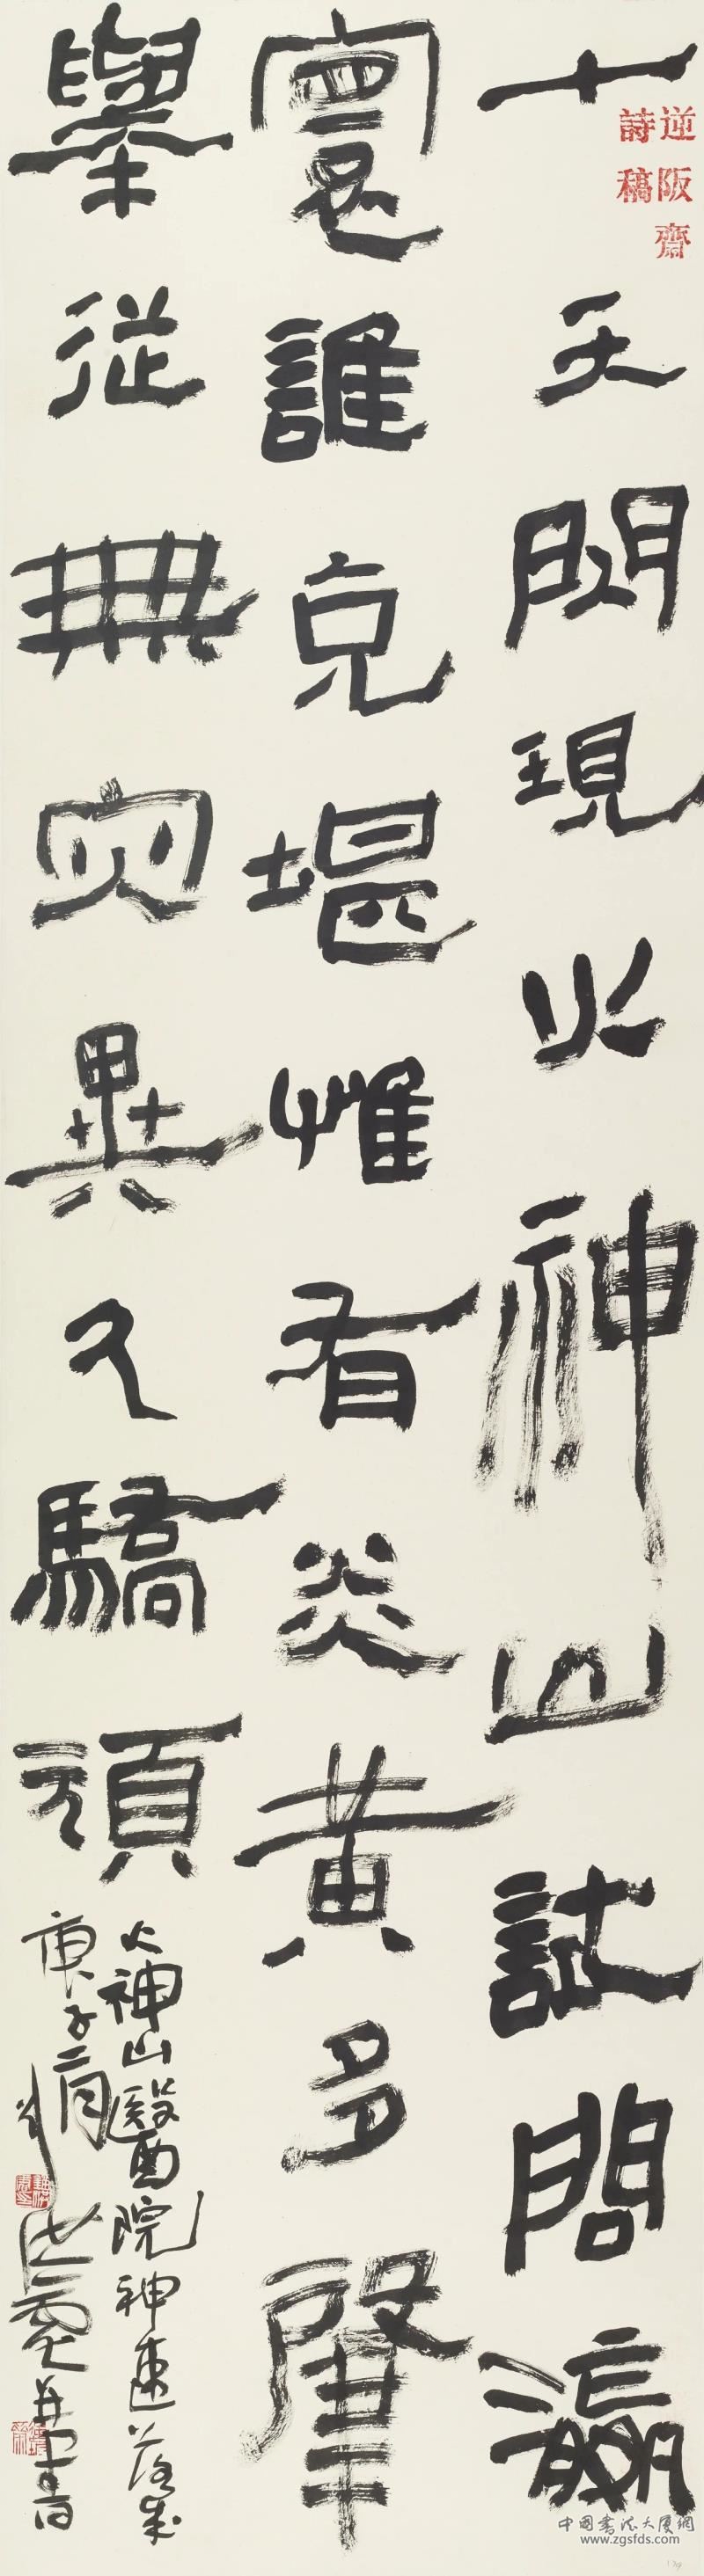 逆阪齋
詩稿
十天閃現火神山試問瀛
寰誰克堪惟有炎黃多肇
舉從無災異久驕頑
火神山醫院神速落成
庚子二月劉洪彪并書
中国書法大廈網
www.zgsfds.com